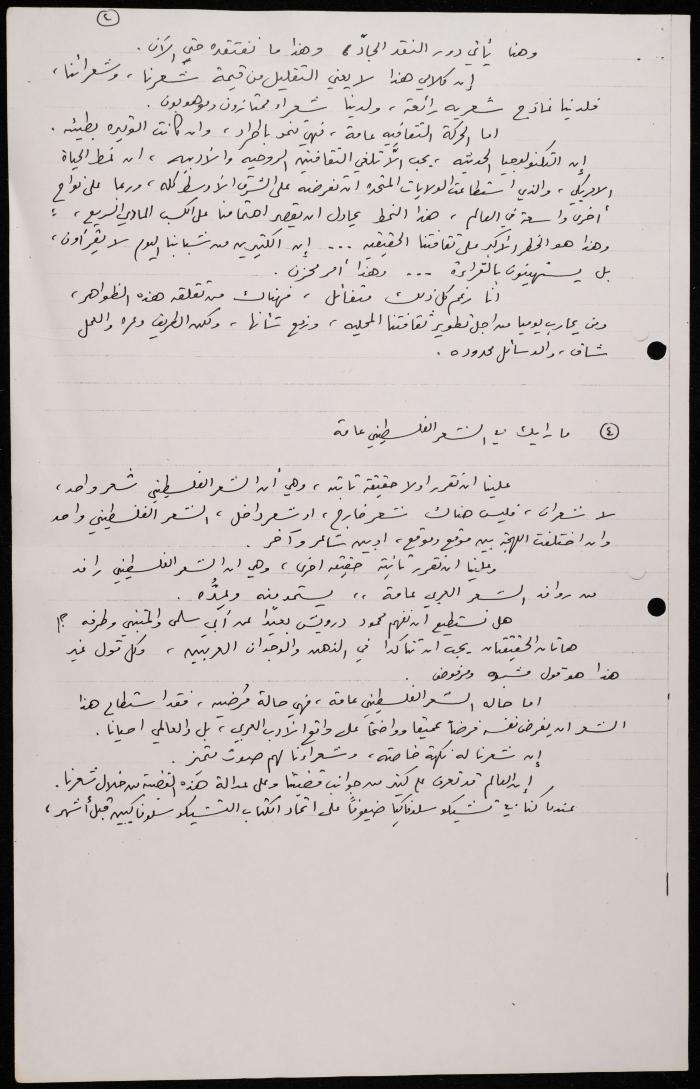 ٢
وهنا يأتي دور النقد الجادّ، وهذا ما نفتقده حتى الآن.
إن كلامي هذا لا يعني التقليل من قيمة شعرنا، وشعرائنا،
فلدينا نماذج شعرية رائعة، ولدينا شعراء ممتازون وموهوبون.
اما الحركة الثقافيه عامة، فهي تنمو باطراد، وان كانت الوتيره بطيئه.
إن التكنولوجيا الحديثه، يجب ألّا تلغي الثقافتين الروحيه والأدبيه، ان نمط الحياة
الامريكي، والذي استطاعت الولايات المتحده ان تفرضه على الشرق الأوسط كله، وربما على نواحٍ
أخرى واسعة في العالم، هذا النمط يحاول ان يقصر اهتمامنا على الكسب المادي السريع،
وهذا هو الخطر الأكبر على ثقافتنا الحقيقيه ... إن الكثيرين من شبابنا اليوم لا يقرأون،
بل يستهينون بالقراءة ... وهذا أمر محزن.
أنا رغم كل ذلك متفائل، فهناك من تقلقه هذه الظواهر،
ومن يحارب يوميا من اجل تطوير ثقافتنا المحليه، ورفع شأنها، ولكن الطريق وعره والعمل
شاق، والوسائل محدوده.
٤ ما رايك في الشعر الفلسطيني عامة
علينا ان نقرر اولا حقيقة ثابته، وهي أن الشعر الفلسطيني شعر واحد،
لا شعران، فليس هناك شعر خارج، او شعر داخل، الشعر الفلسطيني واحد
وان اختلفت اللهجة بين موقع وموقع، او بين شاعر وآخر.
وعلينا ان نقرر ثانية حقيقه اخرى، وهي ان الشعر الفلسطيني رافد
من روافد الشعر العربي عامة،، يستمد منه ويمدُّه.
هل نستطيع ان نفهم محمود درويش بعيدًا عن أبي سلمى والمتنبي وطرفه ؟!
هاتان الحقيقتان يجب ان تتأكدا في الذهن والوجدان العربيين، وكل قول غير
هذا هو قول مشبوه ومرفوض.
اما حاله الشعر الفلسطيني عامة، فهي حالة مُرضيه، فقد استطاع هذا
الشعر ان يفرض نفسه فرضاً عميقا وواضحًا على واقع الأدب العربي، بل والعالمي احيانا.
إن شعرنا له نكهة خاصته، وشعراؤنا لهم صوت متميز.
إن العالم قد تعرف على كثير من جوانب قضيتنا وعلى عدالة هذه القضية من خلال شعرنا.
عندما كنا في تشيكوسلوفاكيا ضيوفًا على اتحاد الكتاب التشيكوسلوفاكيين قبل أشهر،